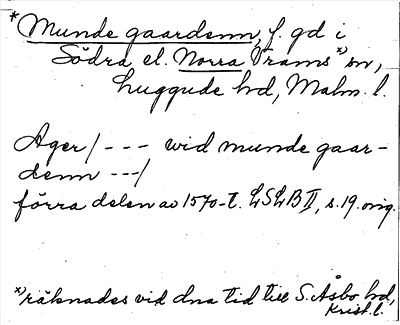 * Munde gaardenn, f. gd i
Södra el. Norra Vrams *) sn,
Luggude hd, Malm. l.
Ager /--- wid munde gaar-
denn ---/
förra delen av 1570-t. LSLB II, s. 19. orig.
*) räknades vid dna tid till S. Åsbo hd,
Krist. l.